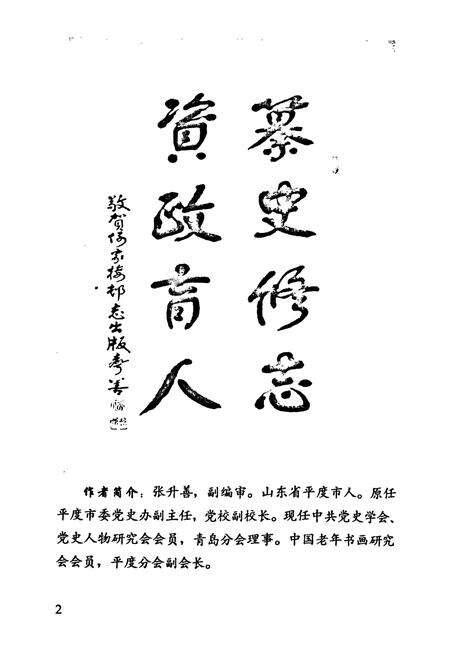 纂史修志
資政育人
敬贺家楼邨志出版
作者简介：张升善，副编审。山东省平度市人。原任
平度市委党史办副主任，党校副校长。现任中共党史学会、
党史人物研究会会员，青岛分会理事。中国老年书画研究
会会员，平度分会副会长。
2